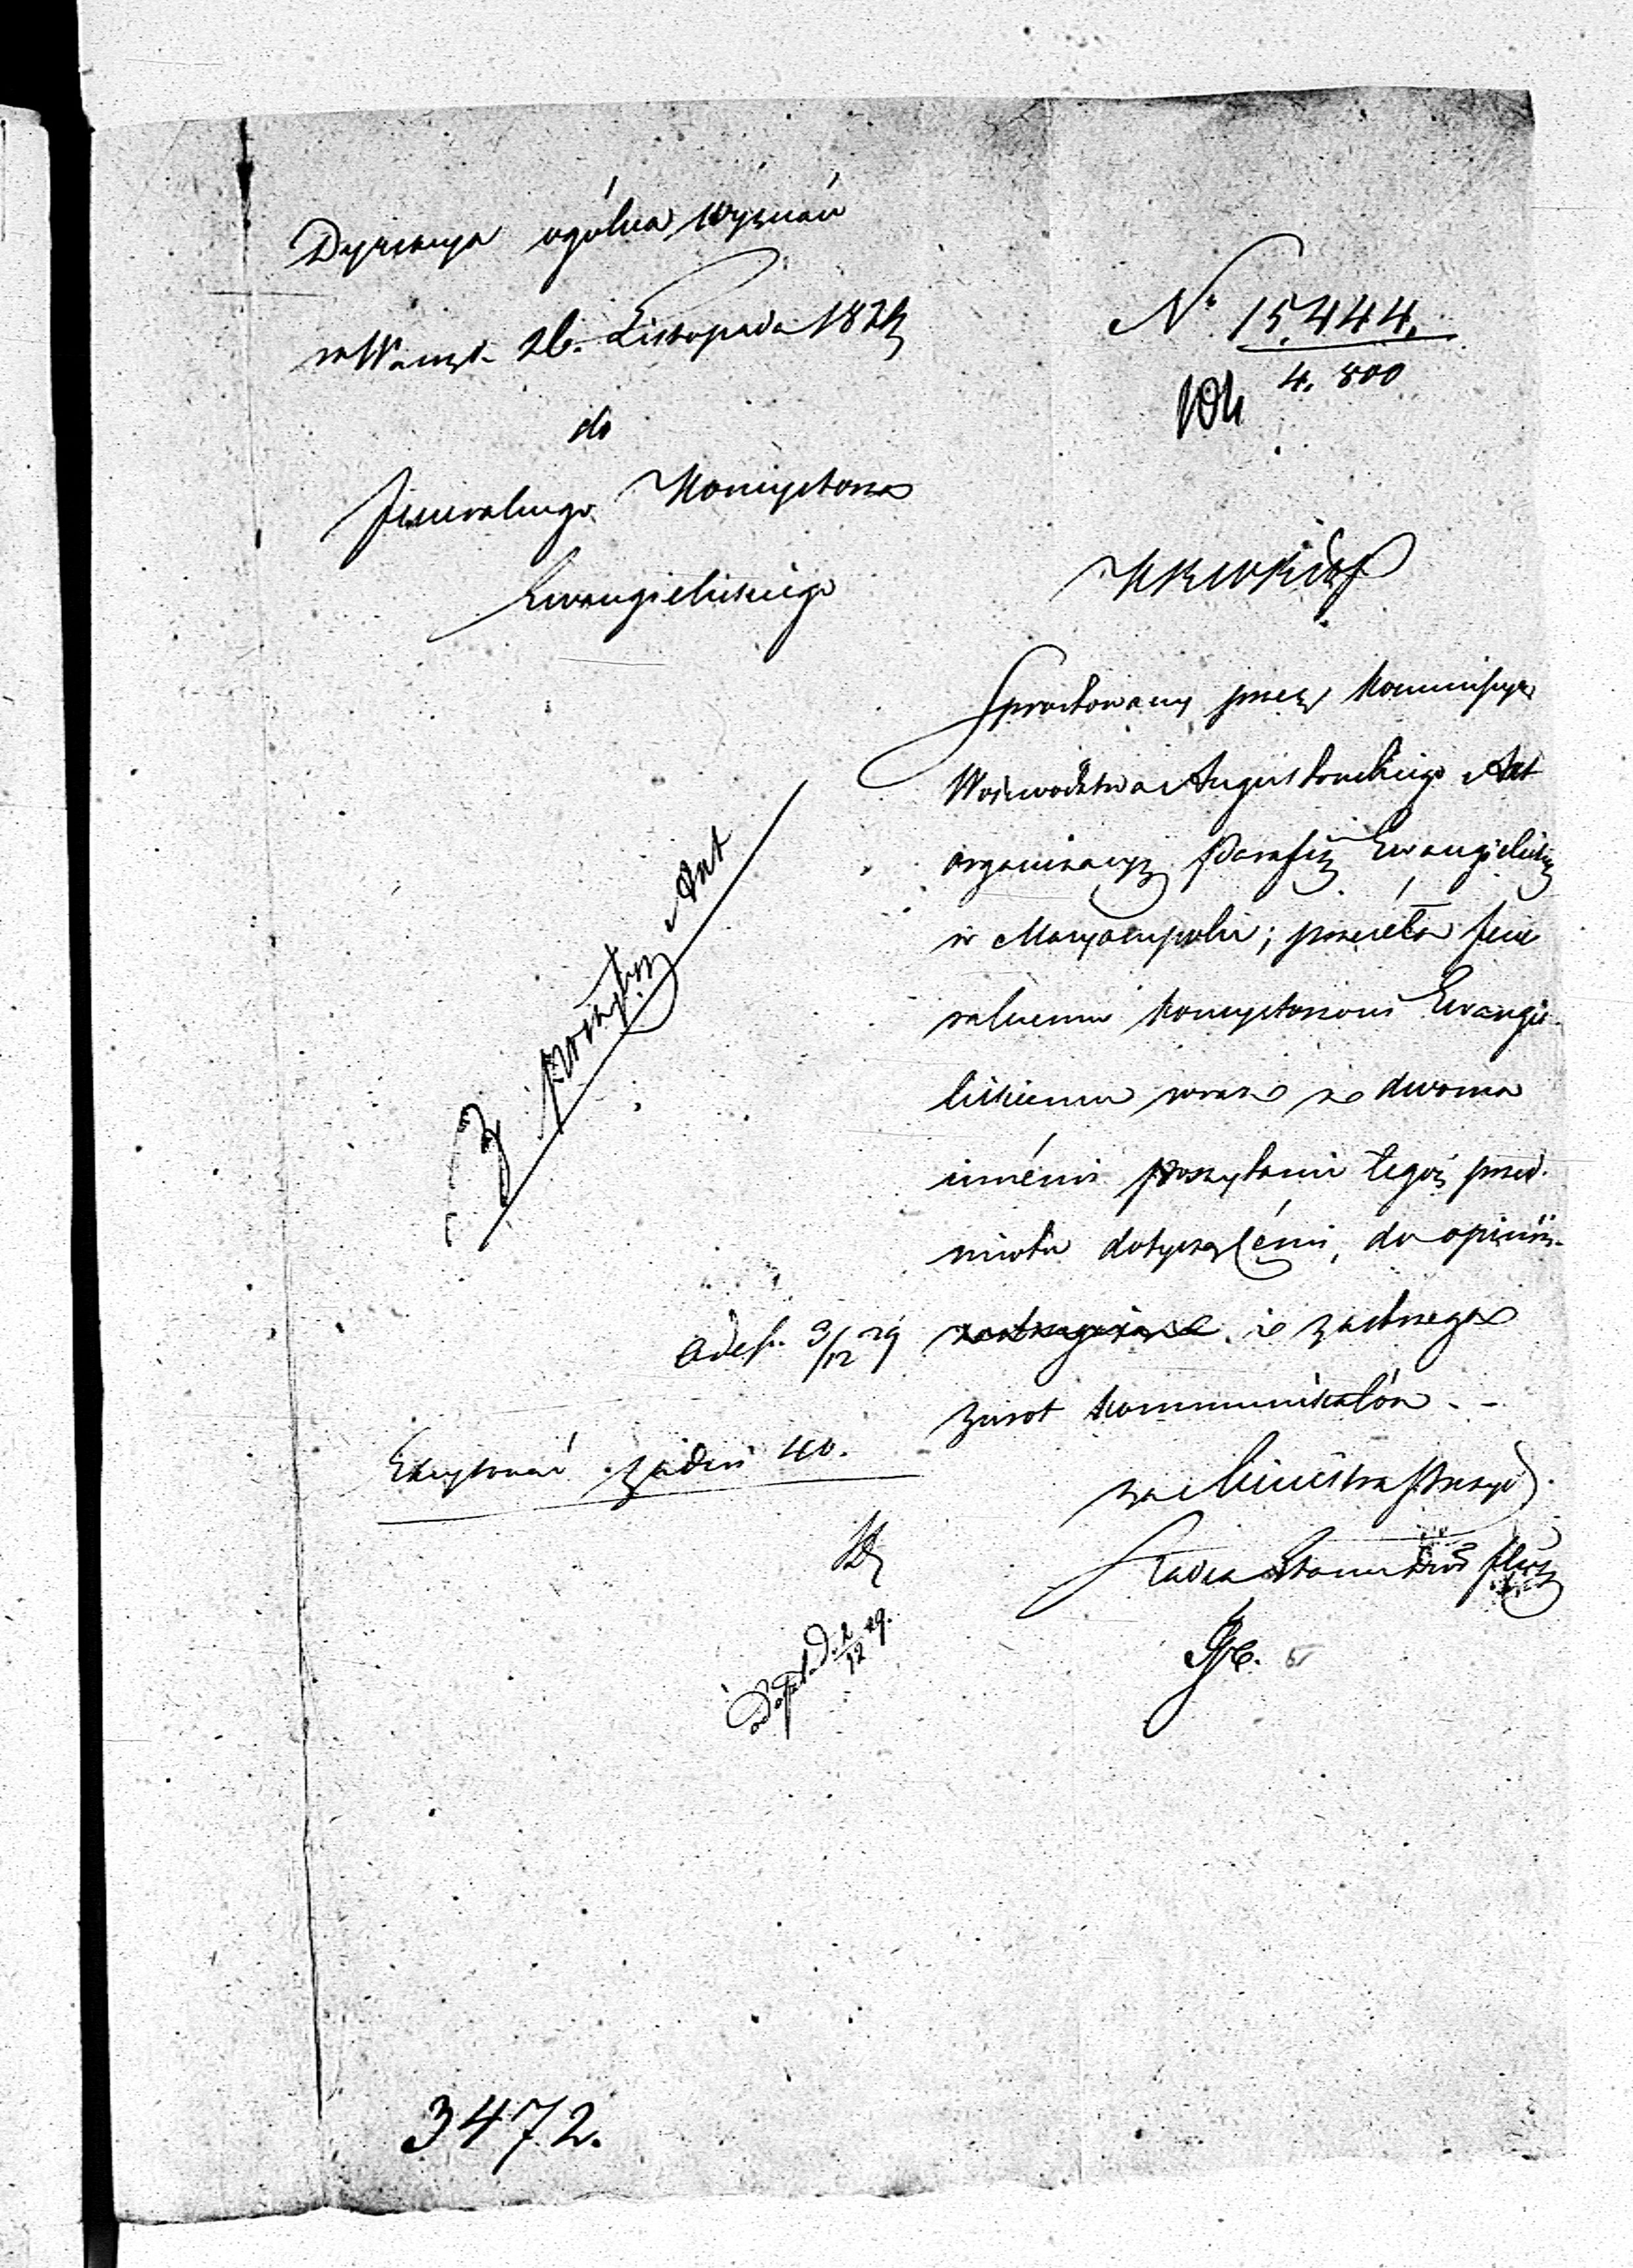 Dyrekcya ogólna Wyznań
w Warsz. 26. Listopada 1829
do
Jeneralnego Konsystorza
Ewangielickiego
No 15,444.
4. 800
Sprostowany przez Kommissyą
Województwa Augustowskiego Akt
organizacyi Parafii Ewangielickiej
w Maryampolu; przeséła Jene
ralnemu Konsystorzowi Ewangie
lickiemu wraz z dwoma
innémi poszytami tegoż przed-
miotu dotyczącémi, do opinii
i zastrzega
zwrot kommunikatów. -
za Ministra Prezyd
Radca Stanu
Z poszytów Akt
3/12 29
Excytować za dni 40.
2/12 29.
3472.